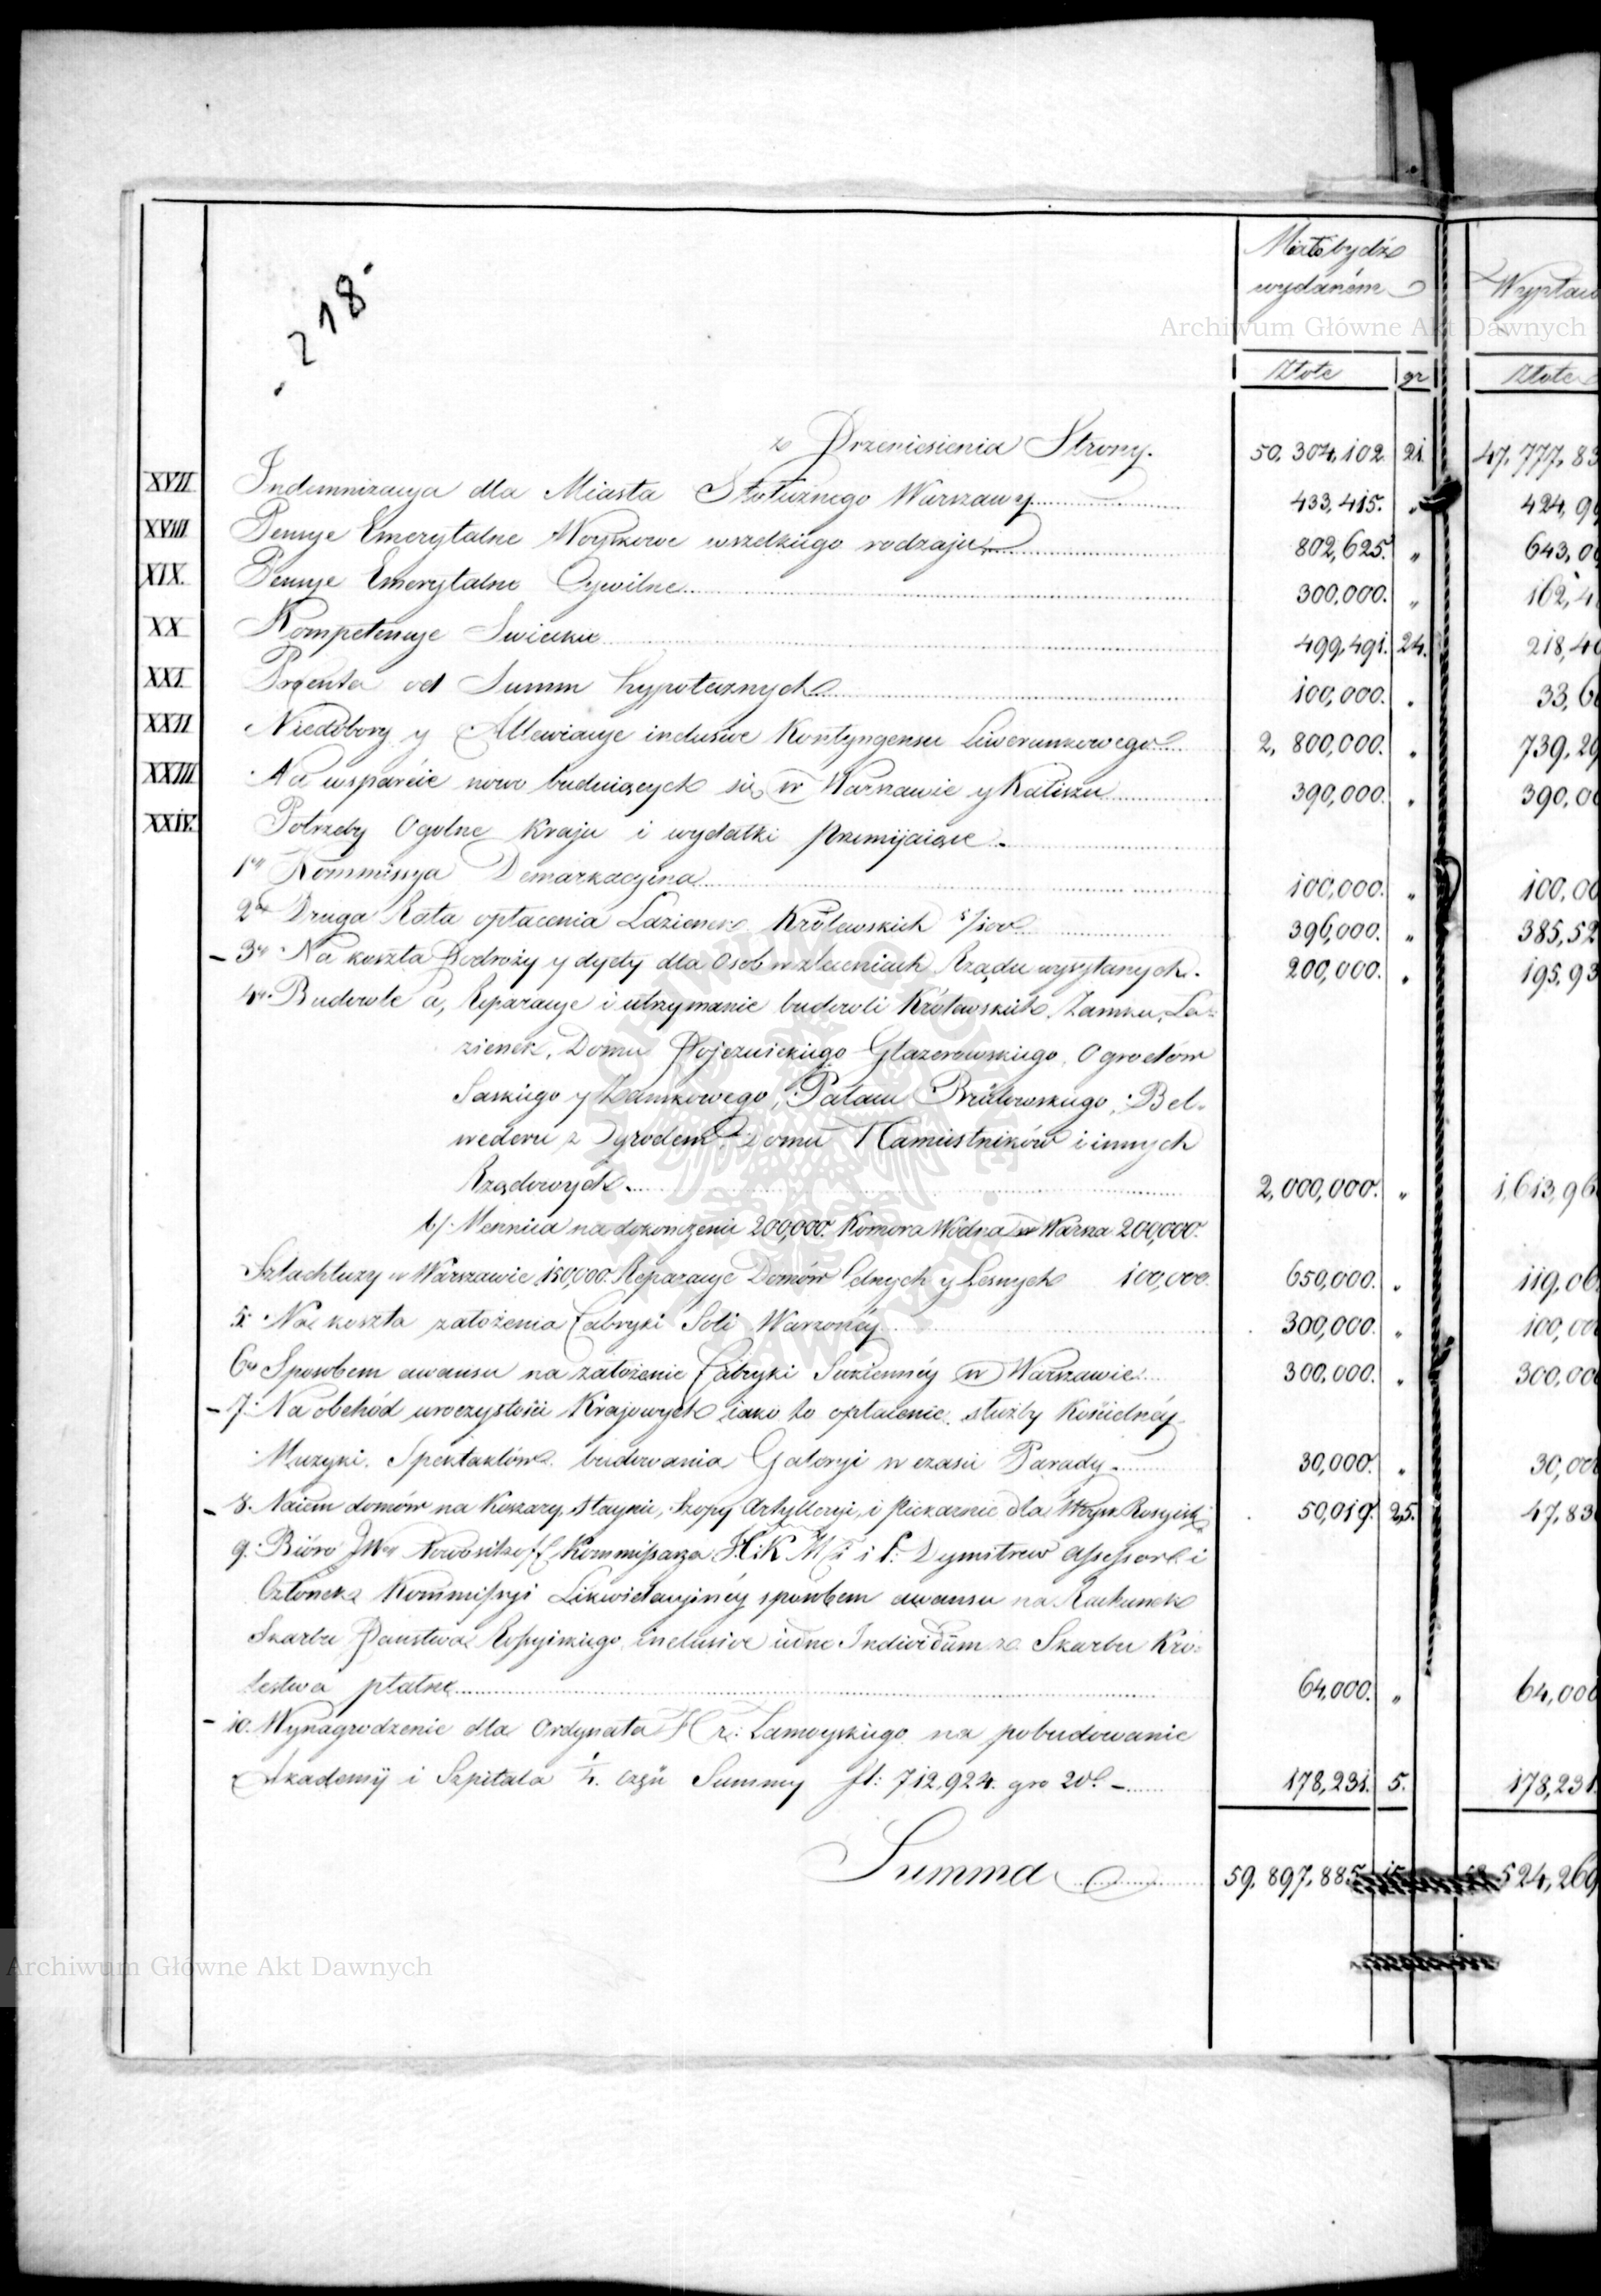 218
Miało bydź
wydaném
Wypłac
Złote gr Złote
z Przeniesienia Strony. 50,304,102. 21. 47,777,83
XVII Indemnizacya dla Miasta Stołecznego Warszawy 433,415. „ 424,9
XVIII Pensye Emerytalne Woyskowe wszelkiego rodzaju 802,625. „ 643,0
XIX. Pensye Emerytalne Cywilne 300,000. „ 162,4
XX Kompetencye Suieckie 499,491. 24. 218,40
XXI Procenta od Summ hypotecznych 100,000. „ 33,6
XXII Niedobory y Allewiacye inclusive Kontyngensu Liwerunkowego 2,800,000. „ 739,29
XXIII Na wsparcie nowo buduiących się w Warszawie y Kaliszu 390,000. „ 390,0
XXIV. Potrzeby Ogólne Kraju i wydatki przemijaiące.
1o Kommissya Demarkacyina 100,000. „ 100,00
2o Druga Rata opłacenia Lazienek Królewskich 396,000. „ 385,52
3o Na koszta Podroży y dyety dla Osob w zleceniach Rządu wysyłanych. 200,000. „ 195,93
4o Budowle a, Reparacye i utrzymanie budowli Królewskich, Zamku, La-
zienek, Domu Pojezuickiego Glazerowskiego, Ogrodów
Saskiego y Zamkowego, Pałacu Brülowskiego, Bel-
wederu z Ogrodem, Domu Namiestników i innych
Rządowych. 2,000,000. „ 1,613,96
b/. Mennica na dokończenie 200,000. Komora Wodna w Warsza 200,000.
Szlachtuzy w Warszawie 150,000. Reparacye Domów Celnych y Lesnych 100,000. 650,000. „ 119,06
5. Na koszta założenia fabryki Soli Warzonéy 300,000. „ 100,00
6o Sposobem awansu na założenie fabryki Sukiennéy w Warszawie 300,000. „ 300,000
7. Na obchód uroczystości Krajowych iako to opłacenie służby Kościelnéy
Muzyki, Spektaklów, budowania Galeryi w czasie Parady. 30,000. „ 30,000
8. Naiem domów na Koszary, Staynie, Szopy Artylleryi, i Piekarnie dla Woysk Rossyisk 50,019. 25. 47,83
9. Biúro JWo Nowosiltzoff Kommissarza i f: Dymitrew Assessora i
Członeka Kommissyi Likwidacyjnéy sposobem awansu na Rachunek
Skarbu Państwa Rossyiskiego, inclusive iedne Individüm ze Skarbu Kró-
lestwa płatne 64,000. „ 64,000
10. Wynagrodzenie dla Ordynata Hr: Zamoyskiego na pobudowanie
Akademij i Szpitala ¼. części Summy fl: 712,924. gro 20. 178,231. 5. 178,231.
Summa 59,897,885. 15. 524,269
Archiwum Główne Akt Dawnych
Archiwum Główne Akt Dawnych